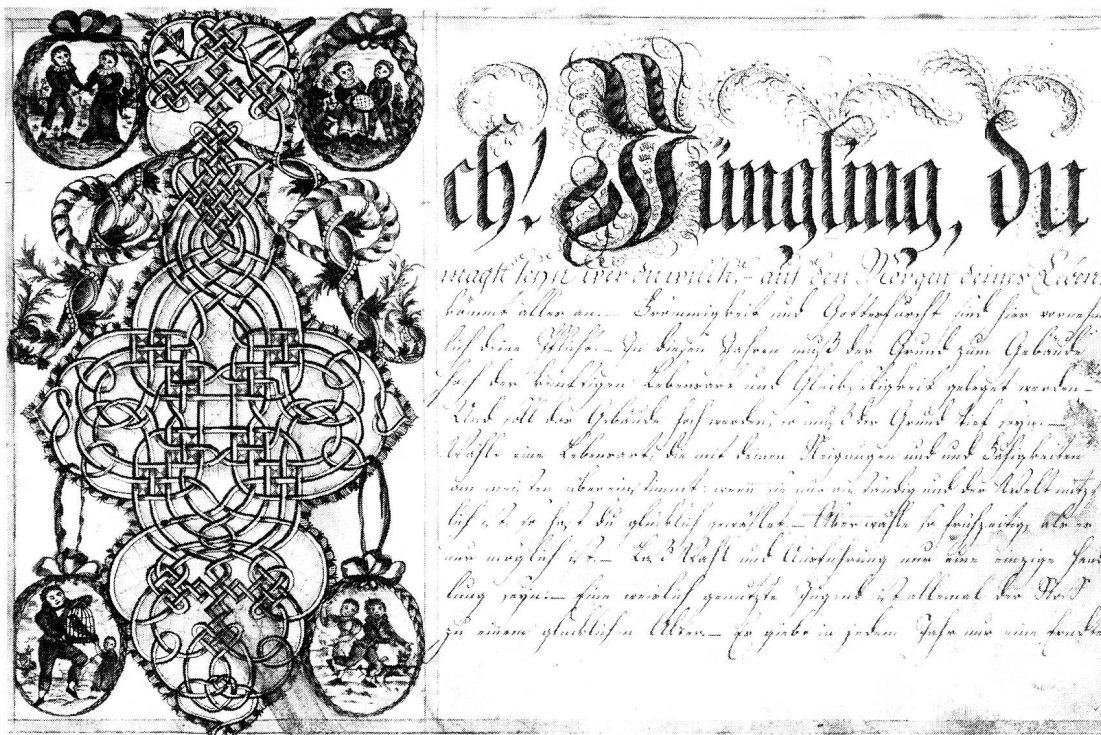 ch! Jüngling, du
magst seyn wer du willst, – auf den Morgen deines Leben
kömmt alles an. – Frömmigkeit und Gottesfurcht sind hier vornehm
lich deine Pflicht. – In diesen Jahren muß der Grund zum Gebäude
der künftigen Lebensart und Glückseligkeit geleget werden –
Und soll das Gebäude hoch werden, so muß der Grund tief seyn. –
Wähle eine Lebensart, die mit deinen Neigungen und und Fähigkeiten
am meisten übereinstimmt: wenn sie nur anständig und der Welt nütz
lich ist, so hast du glücklich gewählet – Aber wähle so frühzeitig, als es
nur möglich ist. – Laß Wahl und Ausführung nur eine einzige Hand
lung seyn. – Eine weislich genutzte Jugend ist allemal der Stoff
zu einem glücklichen Alter. – Es giebt in jedem Jahr nur eine Erndte